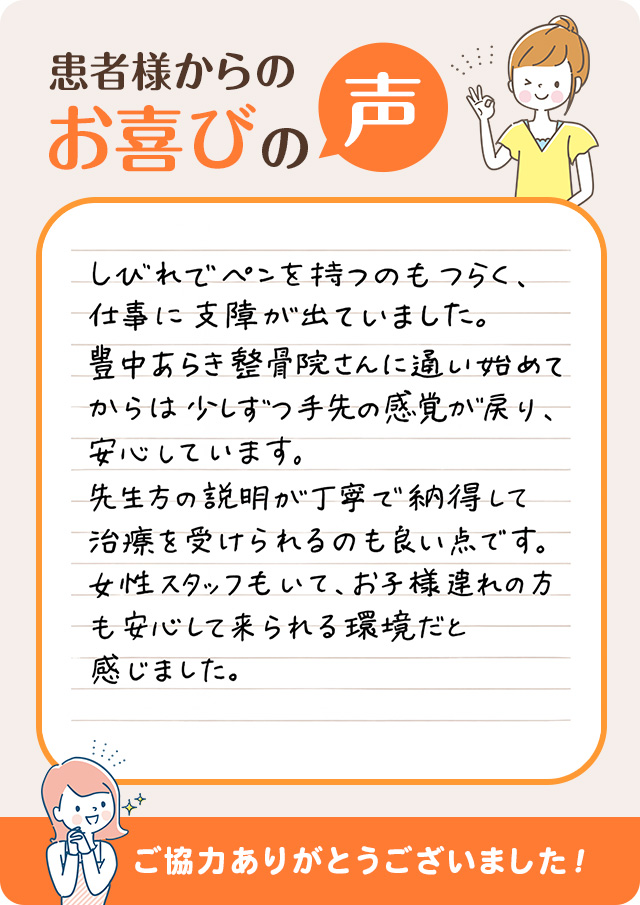 患者様からの
お喜びの声
しびれでペンを持つのもつらく、
仕事に支障が出ていました。
豊中あらき整骨院さんに通い始めて
からは少しずつ手先の感覚が戻り、
安心しています。
先生方の説明が丁寧で納得して
治療を受けられるのも良い点です。
女性スタッフもいて、お子様連れの方
も安心して来られる環境だと
感じました。
ご協力ありがとうございました!